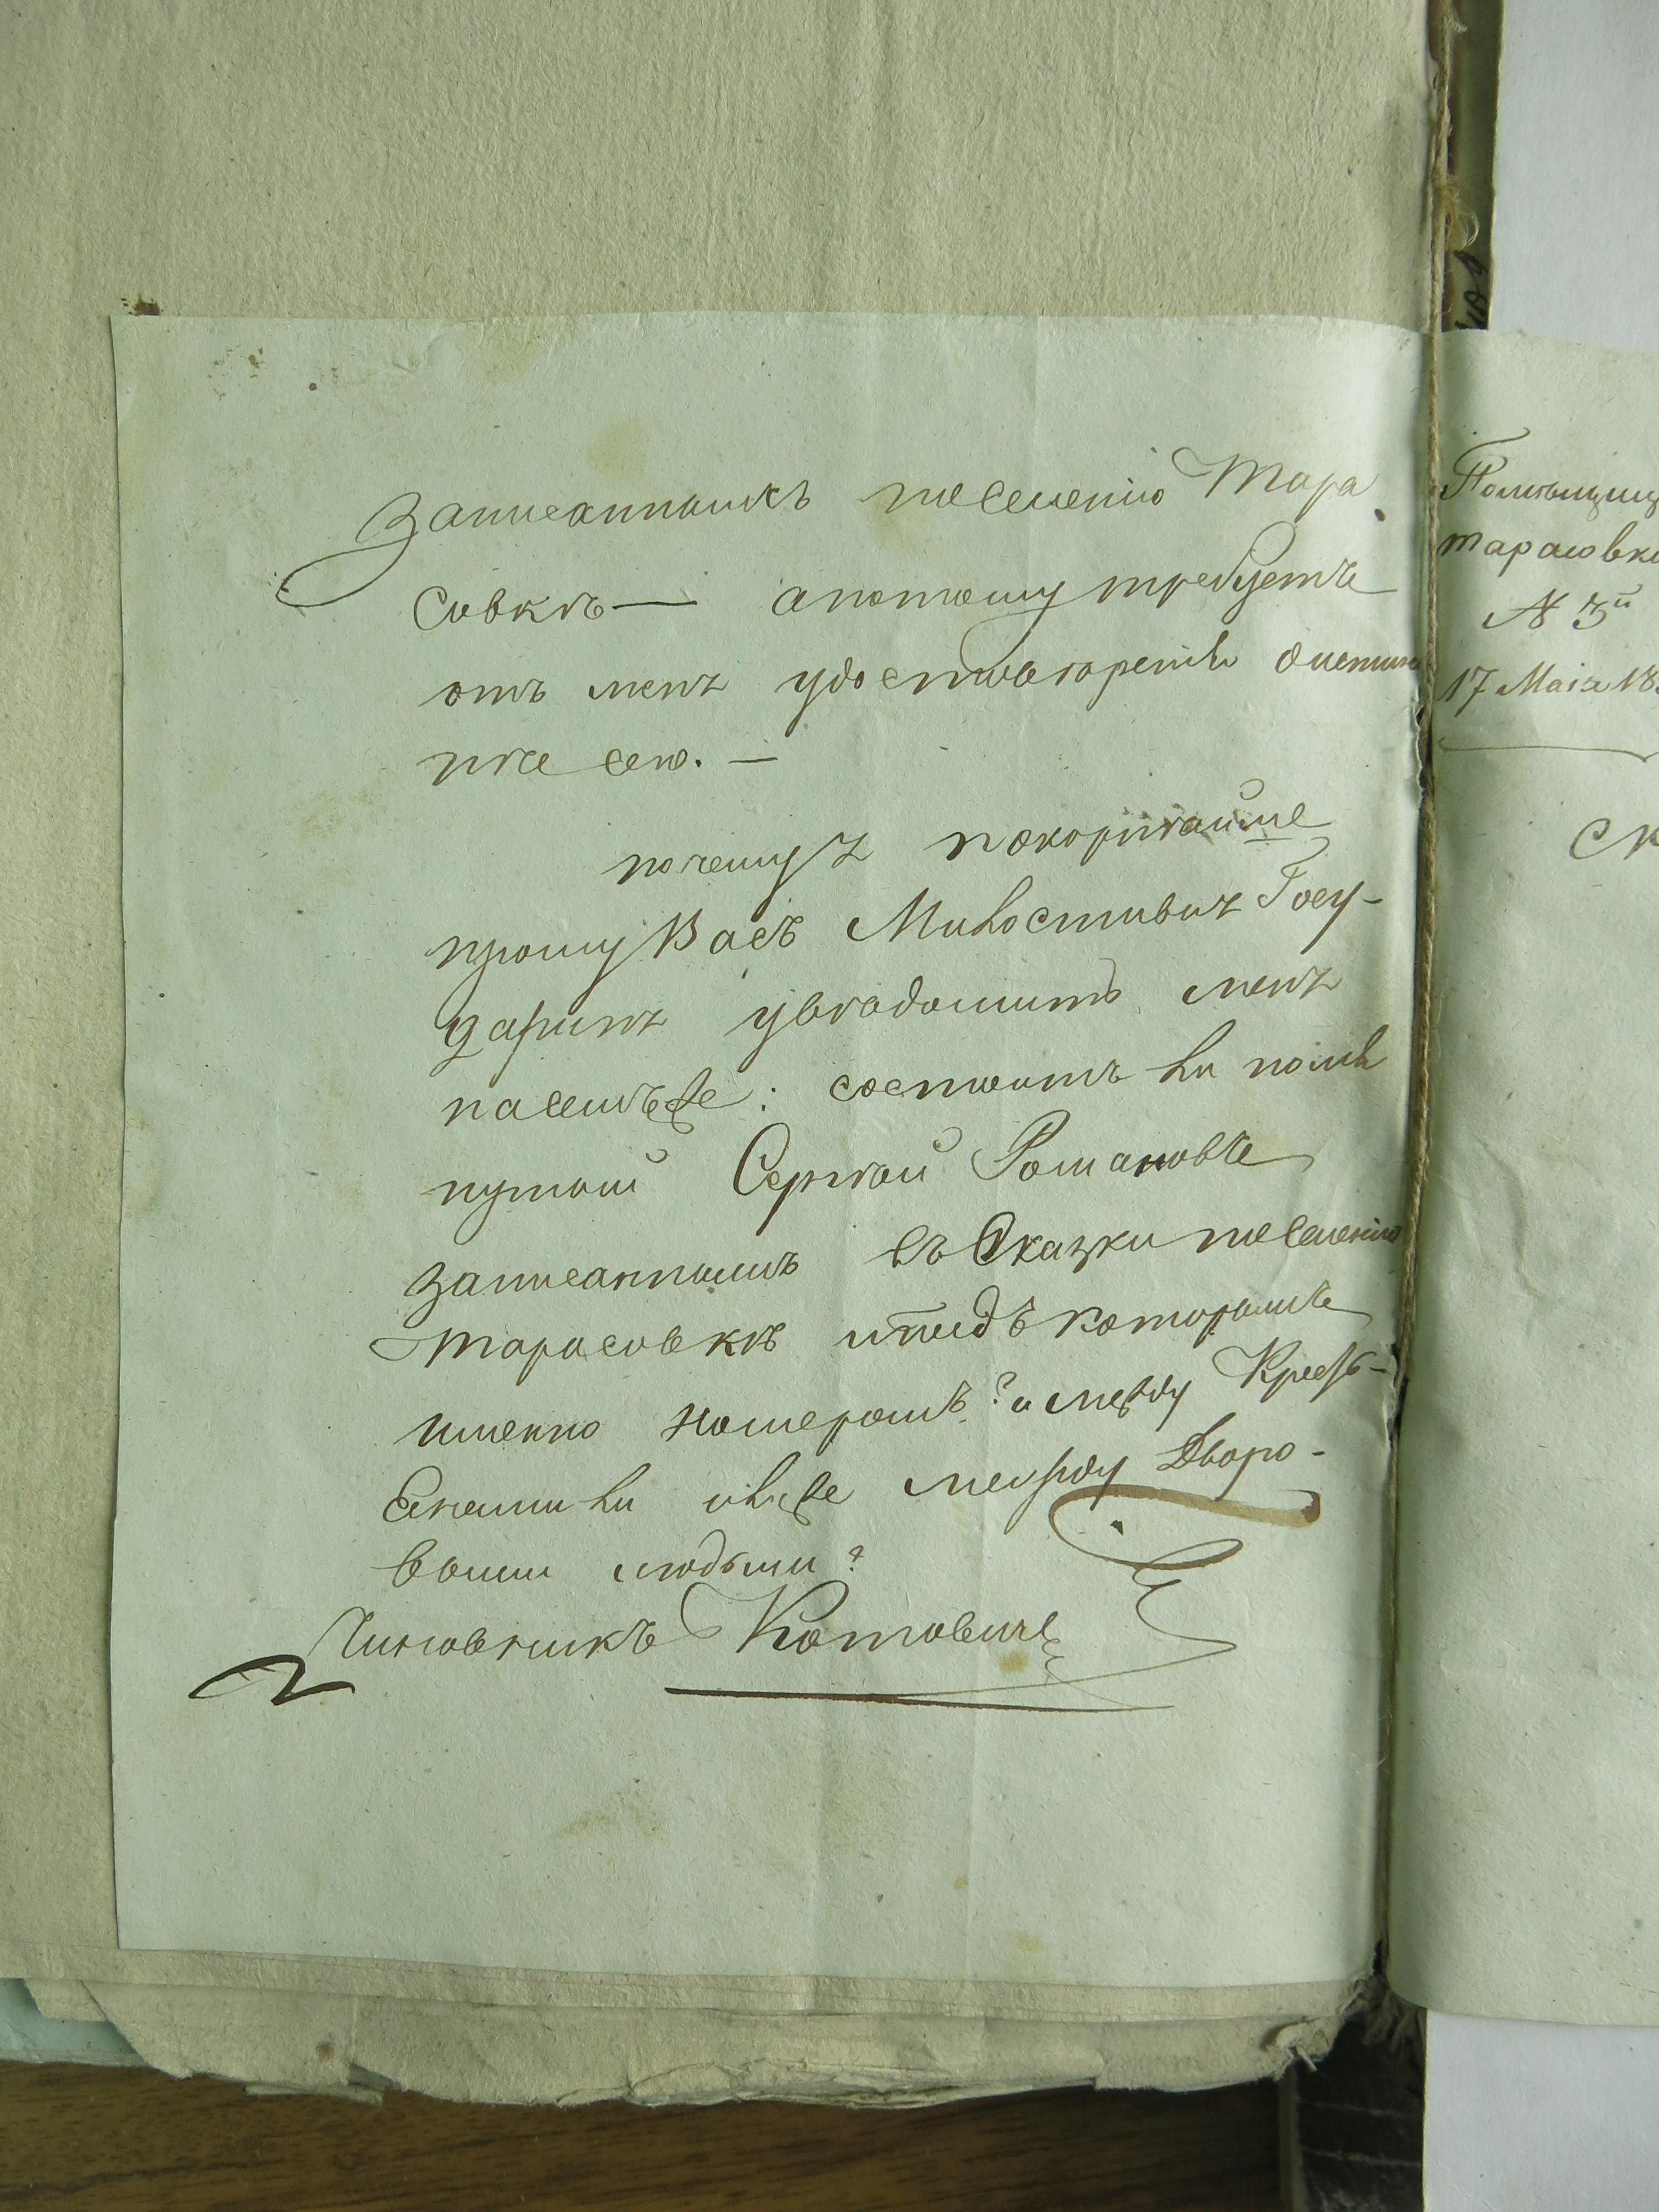 записаннымъ поселенію Тара
совкѣ — апотому требуетъ
отъ меня удостоверенія
сею. —
почему я покорнѣйше
прошу Васъ Милостивый Госу-
дарь увѣдомить меня
насемъже: состоитъ ли
Сергѣй Романовъ
записаннымъ въ Сказки поселенію
Тарасовкѣ иподъ которымъ
именно номеромъ? и между Кресть-
янами ли илиже между Дворо-
выми людьми?
Чиновникъ Котовичъ
Помѣщиц
тарасовк
№ 3й
17 Маія 18
Ск